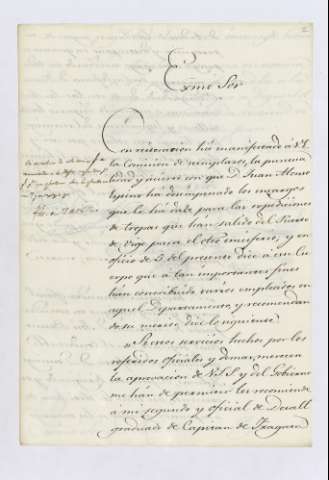 2
Exmo Sor
Con reiteracion ha manifestado á V.E.
la Comision de reemplazos, la puntua
lidad y acierto con que D. Juan Alonso
Espino ha desempeñado los encargos
que le ha dado para las expediciones
de tropas que han salido del Puerto
de Vigo para el otro emisferio, y en
oficio de 5 del presente dice á este Cu
erpo que á tan importantes fines
han contribuido varios empleados en
aquel Departamento, y recomendan
do su merito dice lo siguiente.
"Si unos servicios hechos por los
referidos oficiales y demas, merecen
la aprovacion de V.S.S. y del Gobierno
me han de permitir les recomiende
á mi segundo y oficial de Detall
graduado de Capitan de Fragata